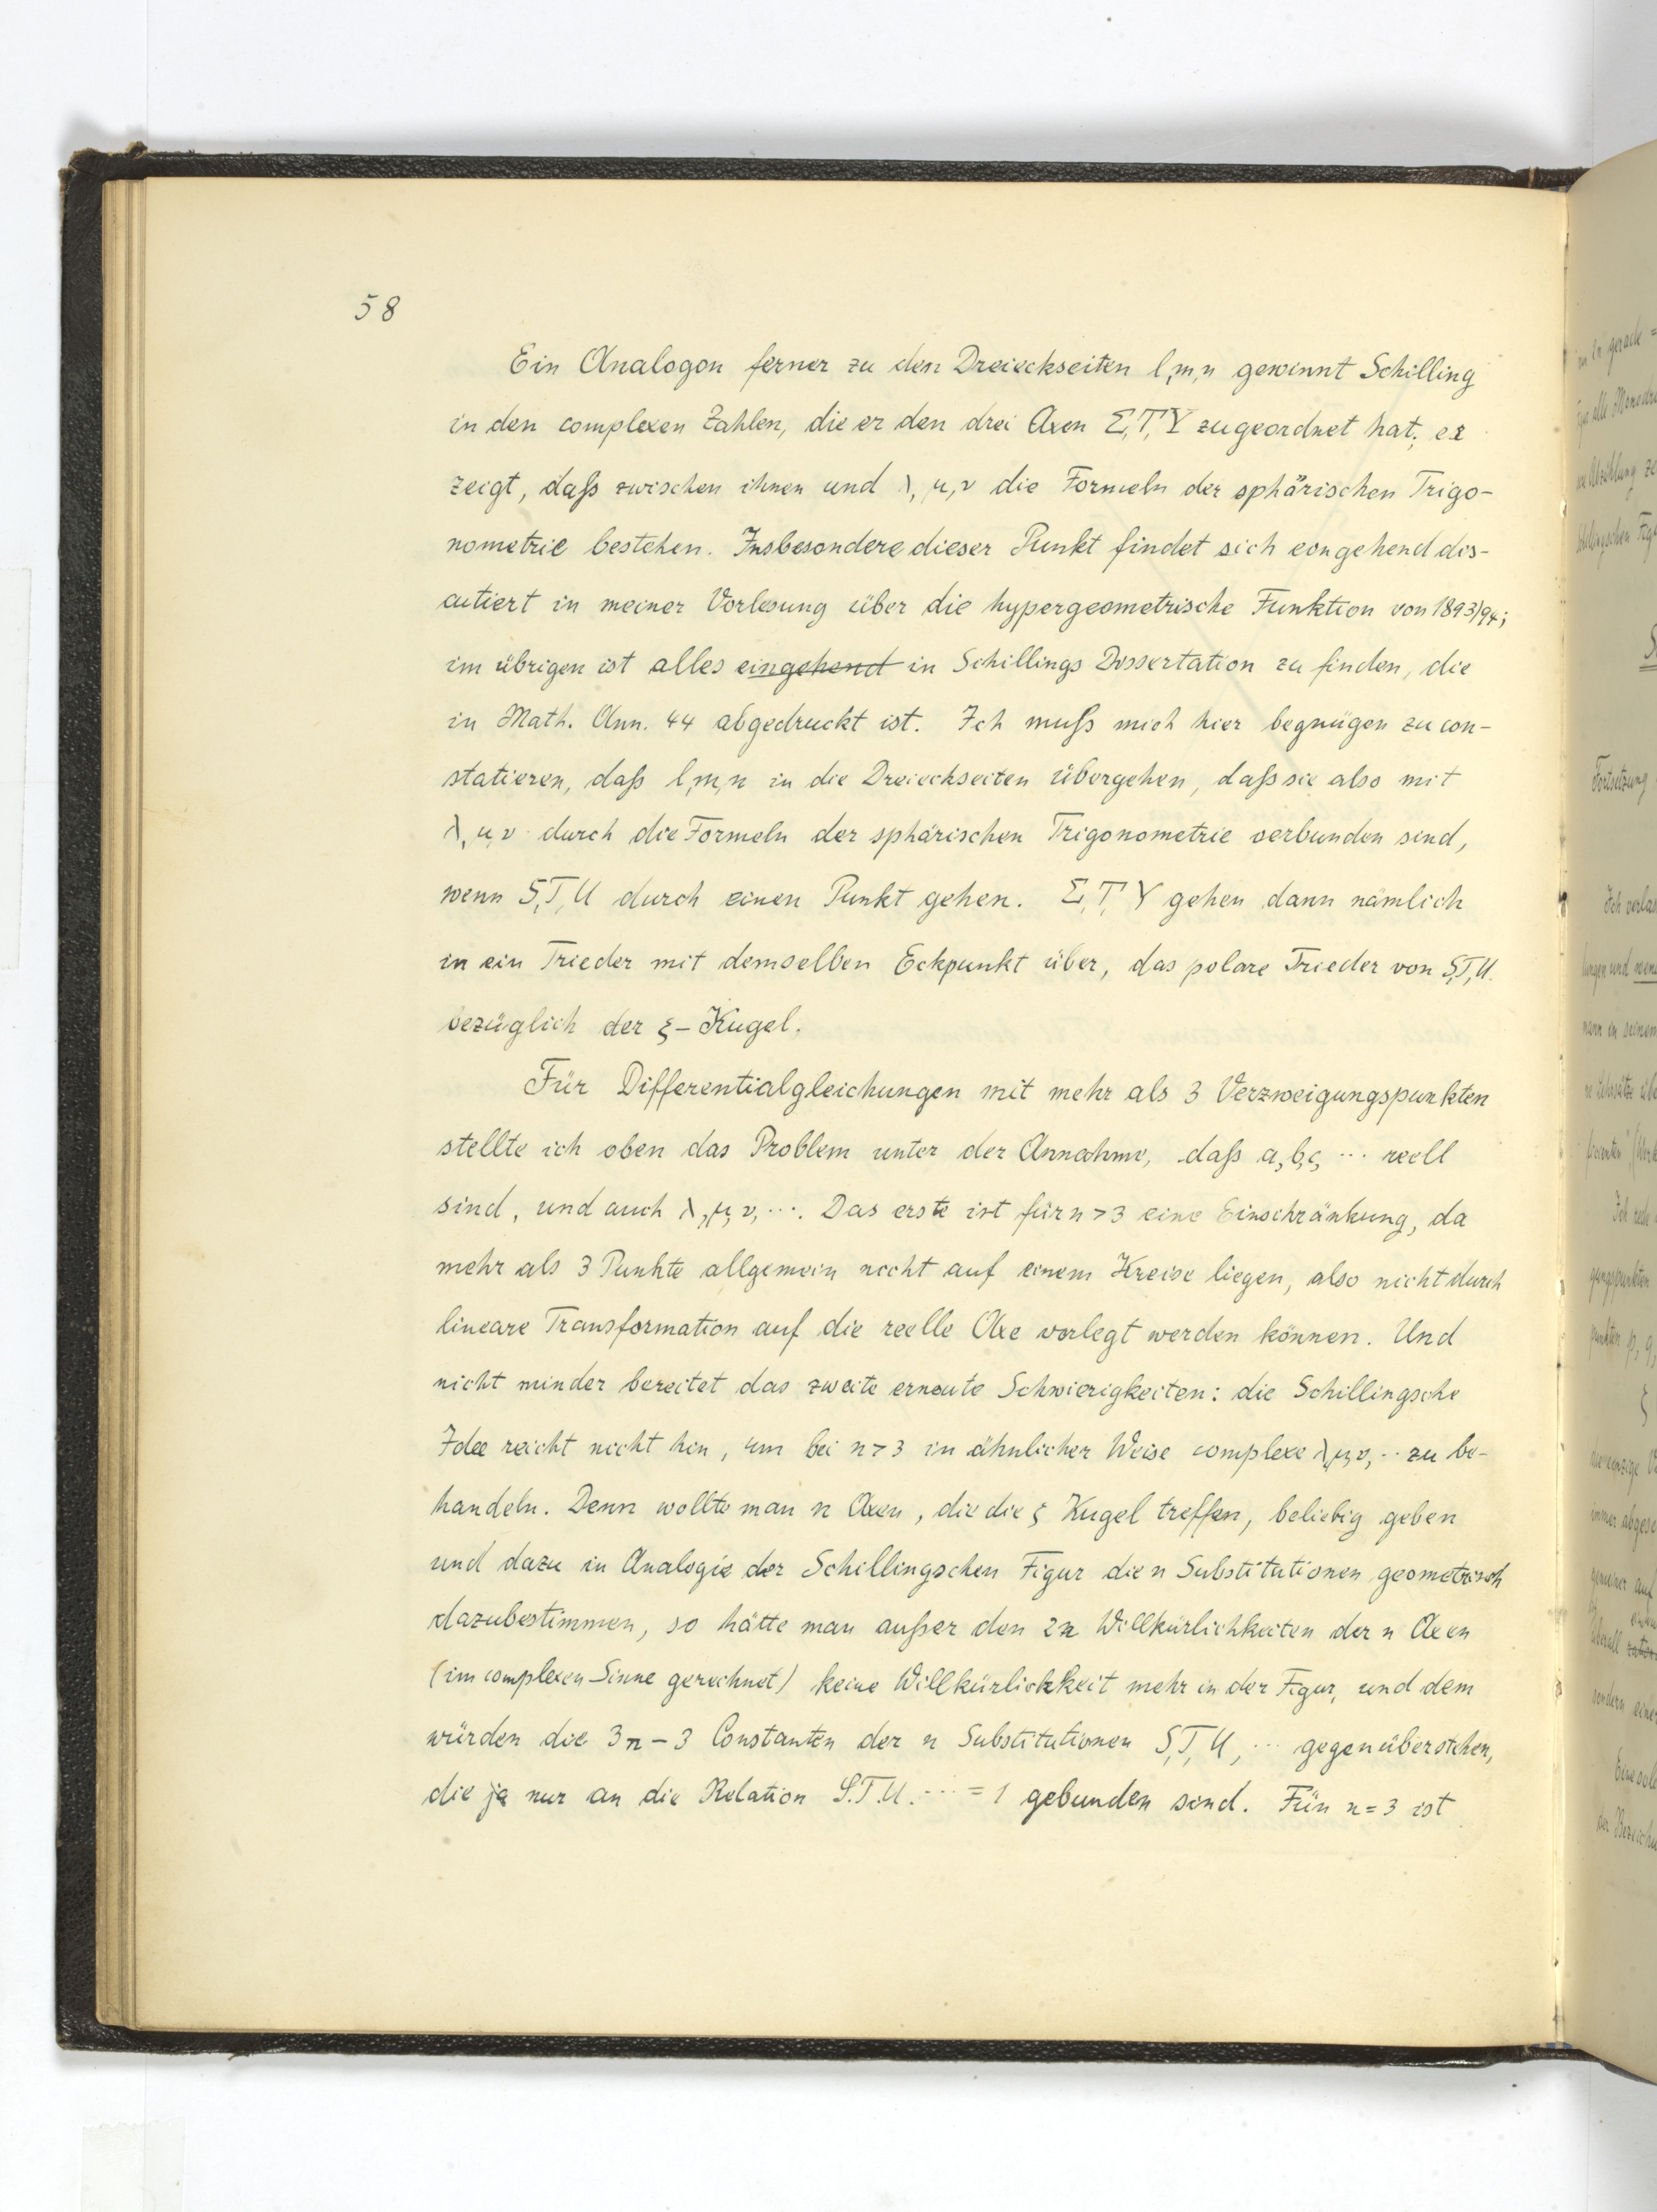 58
Ein Analogon ferner zu den Dreieckseiten l, m, n gewinnt Schilling
in den complexen Zahlen, die er den drei Axen Σ, T, Υ zugeordnet hat; er
zeigt, daß zwischen ihnen und λ, μ, ν die Formeln der sphärischen Trigo-
nometrie bestehen. Insbesondere dieser Punkt findet sich eingehend dis-
cutiert in meiner Vorlesung über die hypergeometrische Funktion von 1893/94;
im übrigen ist alles eingehend in Schillings Dissertation zu finden, die
in Math. Ann. 44 abgedruckt ist. Ich muß mich hier begnügen zu con-
statieren, daß l, m, n in die Dreieckseiten übergehen, daß sie also mit
λ, μ, ν durch die Formeln der sphärischen Trigonometrie verbunden sind,
wenn S, T, U durch einen Punkt gehen. Σ, T, Υ gehen dann nämlich
in ein Trieder mit demselben Eckpunkt über, das polare Trieder von S, T, U.
bezüglich der ξ-Kugel.
Für Differentialgleichungen mit mehr als 3 Verzweigungspunkten
stellte ich oben das Problem unter der Annahme, daß a, b, c, ... reell
sind, und auch λ, μ, ν, .... Das erste ist für n > 3 eine Einschränkung, da
mehr als 3 Punkte allgemein nicht auf einem Kreise liegen, also nicht durch
lineare Transformation auf die reelle Axe verlegt werden können. Und
nicht minder bereitet das zweite erneute Schwierigkeiten: die Schillingsche
Idee reicht nicht hin, um bei n > 3 in ähnlicher Weise complexe λ, μ, ν, .. zu be-
handeln. Denn wollte man n Axen, die die ζ Kugel treffen, beliebig geben
und dazu in Analogie der Schillingschen Figur die n Substitutionen geometrisch
dazubestimmen, so hätte man außer den 2n Willkürlichkeiten der n Axen
(im complexen Sinne gerechnet) keine Willkürlichkeit mehr in der Figur, und dem
würden die 3n - 3 Constanten der n Substitutionen S, T, U, ... gegenüberstehen,
die ja nur an die Relation S.T.U. .... = 1 gebunden sind. Für n = 3 ist